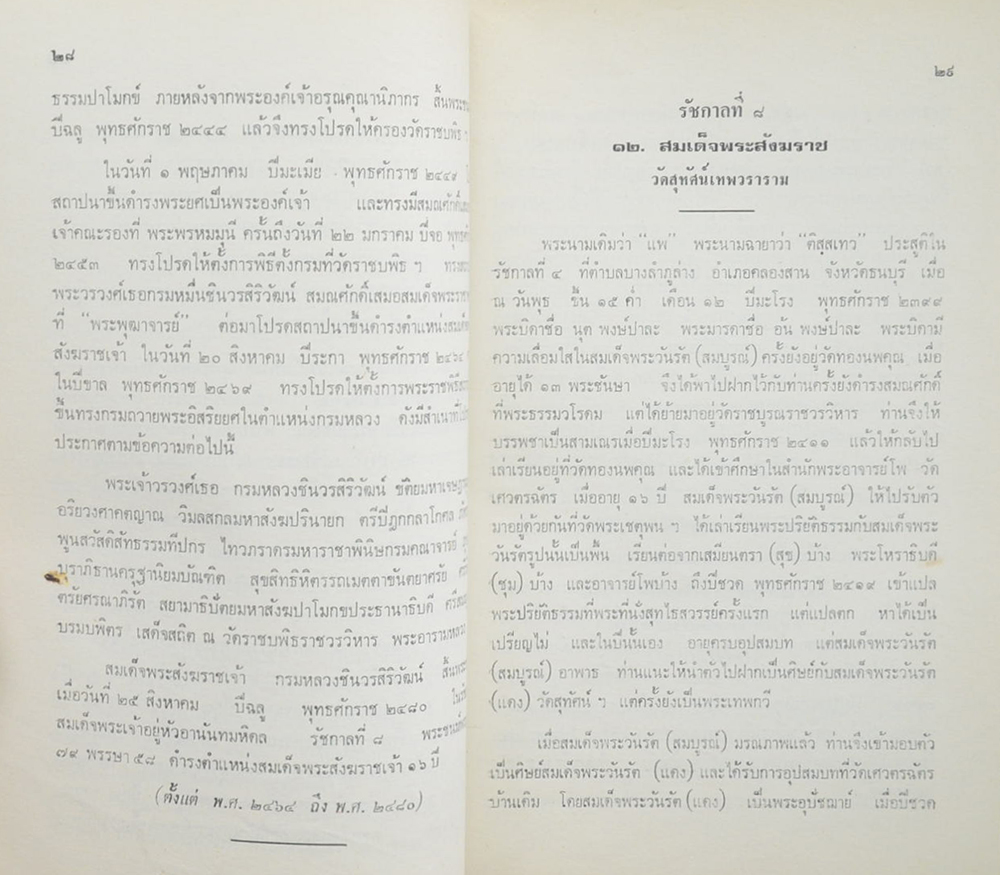 ๒๘
ธรรมปาโมกข์ ภายหลังจากพระองค์เจ้าอรุณคุณานิภากร สิ้นพระชน
ปีฉลู พุทธศักราช ๒๔๔๔ แล้วจึงทรงโปรดให้ครองวัดราชบพิธ ฯ
ในวันที่ ๑ พฤษภาคม ปีมะเมีย พุทธศักราช ๒๔๔๙
สถาปนาขึ้นดำรงพระยศเป็นพระองค์เจ้า และทรงมีสมณศักดิ์
เจ้าคณะรองที่ พระพรหมมุนี ครั้นถึงวันที่ ๒๒ มกราคม ปีจอ พุทธ
๒๔๕๓ ทรงโปรดให้ตั้งการพิธีตั้งกรมที่วัดราชบพิธ ฯ
พระวรวงศ์เธอกรมหมื่นชินวรสิริวัฒน์ สมณศักดิ์เสมอสมเด็จพระราชา
ที่ "พระพุฒาจารย์" ต่อมาโปรดสถาปนาขึ้นดำรงตำแหน่งสมเด็จ
สังฆราชเจ้า ในวันที่ ๒๐ สิงหาคม ปีระกา พุทธศักราช ๒๔๖๔
ในปีขาล พุทธศักราช ๒๔๖๙ ทรงโปรดให้ตั้งการพระราชพิธี
ขึ้นทรงกรมถวายพระอิสริยยศในตำแหน่งกรมหลวง ดังมีสำเนา
ประกาศตามข้อความต่อไปนี้
พระเจ้าวรวงศ์เธอ กรมหลวงชินวรสิริวัฒน์ ขัติยมหาเจษฎา
อริยวงศาคตญาณ วิมลสกลมหาสังฆปรินายก ตรีปิฎกกลาโกศล
พูนสวัสดิสัทธรรมทีปกร ไทวภราดรมหาราชาพินิษกรมคณาจารย์
บุราภิธานครุฐานิยมบัณฑิต สุขสิทธิหิตรรถเมตตาขันตยาศรัย
ตรัยศรณาภิรัต สยามาธิปัตยมหาสังฆปาโมกขประธานาธิบดี
บรมบพิตร เสด็จสถิต ณ วัดราชบพิธราชวรวิหาร พระอารามหลวง
สมเด็จพระสังฆราชเจ้า กรมหลวงชินวรสิริวัฒน์ สิ้นพระ
เมื่อวันที่ ๒๕ สิงหาคม ปีฉลู พุทธศักราช ๒๔๘๐
สมเด็จพระเจ้าอยู่หัวอานันทมหิดล รัชกาลที่ ๘
๗๙ พรรษา ๕๘ ดำรงตำแหน่งสมเด็จพระสังฆราชเจ้า ๑๖ ปี
(ตั้งแต่ พ.ศ. ๒๔๖๔ ถึง พ.ศ. ๒๔๘๐)
๒๙
รัชกาลที่ ๘
๑๒. สมเด็จพระสังฆราช
วัดสุทัศน์เทพวราราม
พระนามเดิมว่า "แพ" พระนามฉายาว่า "ติสฺสเทว" ประสูติใน
รัชกาลที่ ๔ ที่ตำบลบางลำภูล่าง อำเภอคลองสาน จังหวัดธนบุรี เมื่อ
ณ วันพุธ ขึ้น ๑๕ ค่ำ เดือน ๑๒ ปีมะโรง พุทธศักราช ๒๓๙๙
พระบิดาชื่อ นุต พงษ์ปาละ พระมารดาชื่อ อัน พงษ์ปาละ พระบิดามี
ความเลื่อมใสในสมเด็จพระวันรัต (สมบูรณ์) ครั้งยังอยู่วัดทองนพคุณ เมื่อ
อายุได้ ๑๓ พระชันษา จึงได้พาไปฝากไว้กับท่านครั้งยังดำรงสมณศักดิ์
ที่พระธรรมวโรดม แต่ได้ย้ายมาอยู่วัดราชบูรณราชวรวิหาร ท่านจึงให้
บรรพชาเป็นสามเณรเมื่อปีมะโรง พุทธศักราช ๒๔๑๑ แล้วให้กลับไป
เล่าเรียนอยู่ที่วัดทองนพคุณ และได้เข้าศึกษาในสำนักพระอาจารย์โพ วัด
เศวตฉัตร เมื่ออายุ ๑๖ ปี สมเด็จพระวันรัต (สมบูรณ์) ให้ไปรับตัว
มาอยู่ด้วยกันที่วัดพระเชตุพน ฯ ได้เล่าเรียนพระปริยัติธรรมกับสมเด็จพระ
วันรัตรูปนั้นเป็นพื้น เรียนต่อจากเสมียนตรา (สุข) บ้าง พระโหราธิบดี
(ชุม) บ้าง และอาจารย์โพบ้าง ถึงปีชวด พุทธศักราช ๒๔๑๙ เข้าแปล
พระปริยัติธรรมที่พระที่นั่งสุทไธสวรรย์ครั้งแรก แต่แปลตก หาได้เป็น
เปรียญไม่ และในปีนั้นเอง อายุครบอุปสมบท แต่สมเด็จพระวันรัต
(สมบูรณ์) อาพาธ ท่านแนะให้นำตัวไปฝากเป็นศิษย์กับสมเด็จพระวันรัต
(แดง) วัดสุทัศน์ ฯ แต่ครั้งยังเป็นพระเทพกวี
เมื่อสมเด็จพระวันรัต (สมบูรณ์) มรณภาพแล้ว ท่านจึงเข้ามอบตัว
เป็นศิษย์สมเด็จพระวันรัต (แดง) และได้รับการอุปสมบทที่วัดเศวตฉัตร
บ้านเดิม โดยสมเด็จพระวันรัต (แดง) เป็นพระอุปัชฌาย์ เมื่อปีชวด